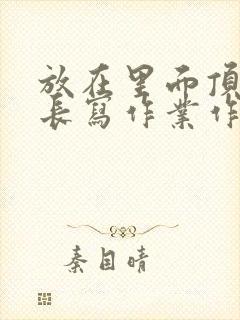 放在里而頂
長寫作業作
秦目晴